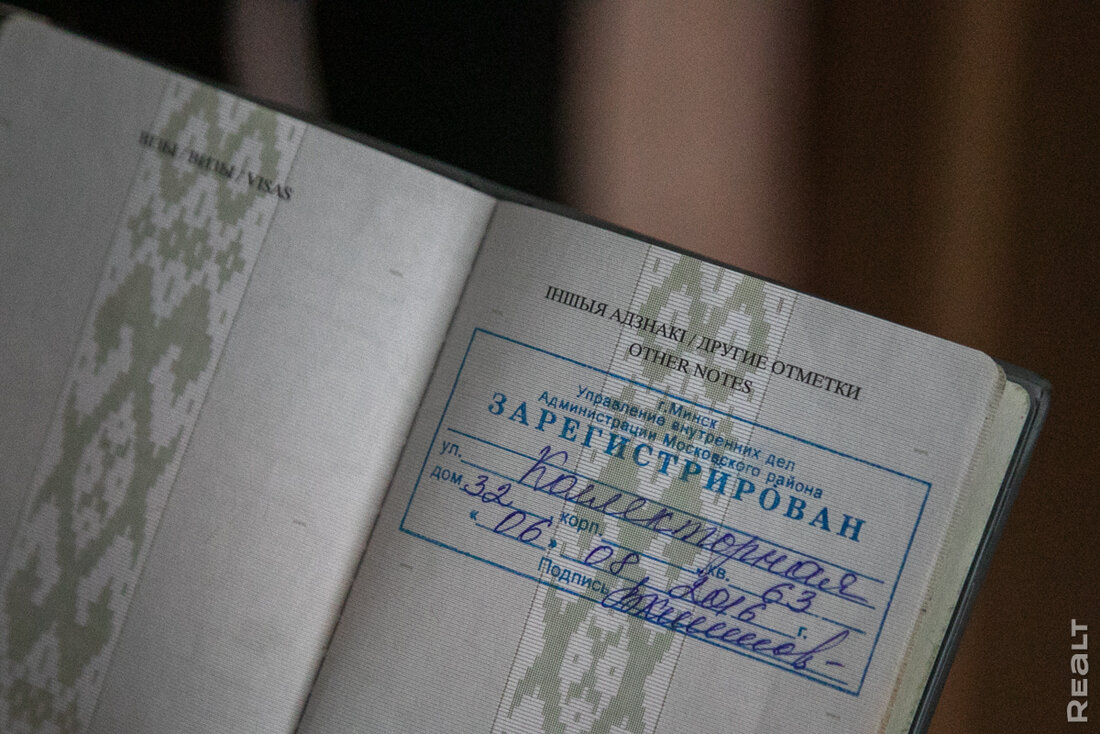 ВІЗЫ / ВИЗЫ / VISAS
ІНШЫЯ АДЗНАКІ / ДРУГИЕ ОТМЕТКИ
OTHER NOTES
г.Минск
Управление внутренних дел
Администрации Московского района
ЗАРЕГИСТРИРОВАН
ул. Коллекторная
дом 32 корп. кв. 63
« 06 » 08 2016 г.
Подпись
Realt